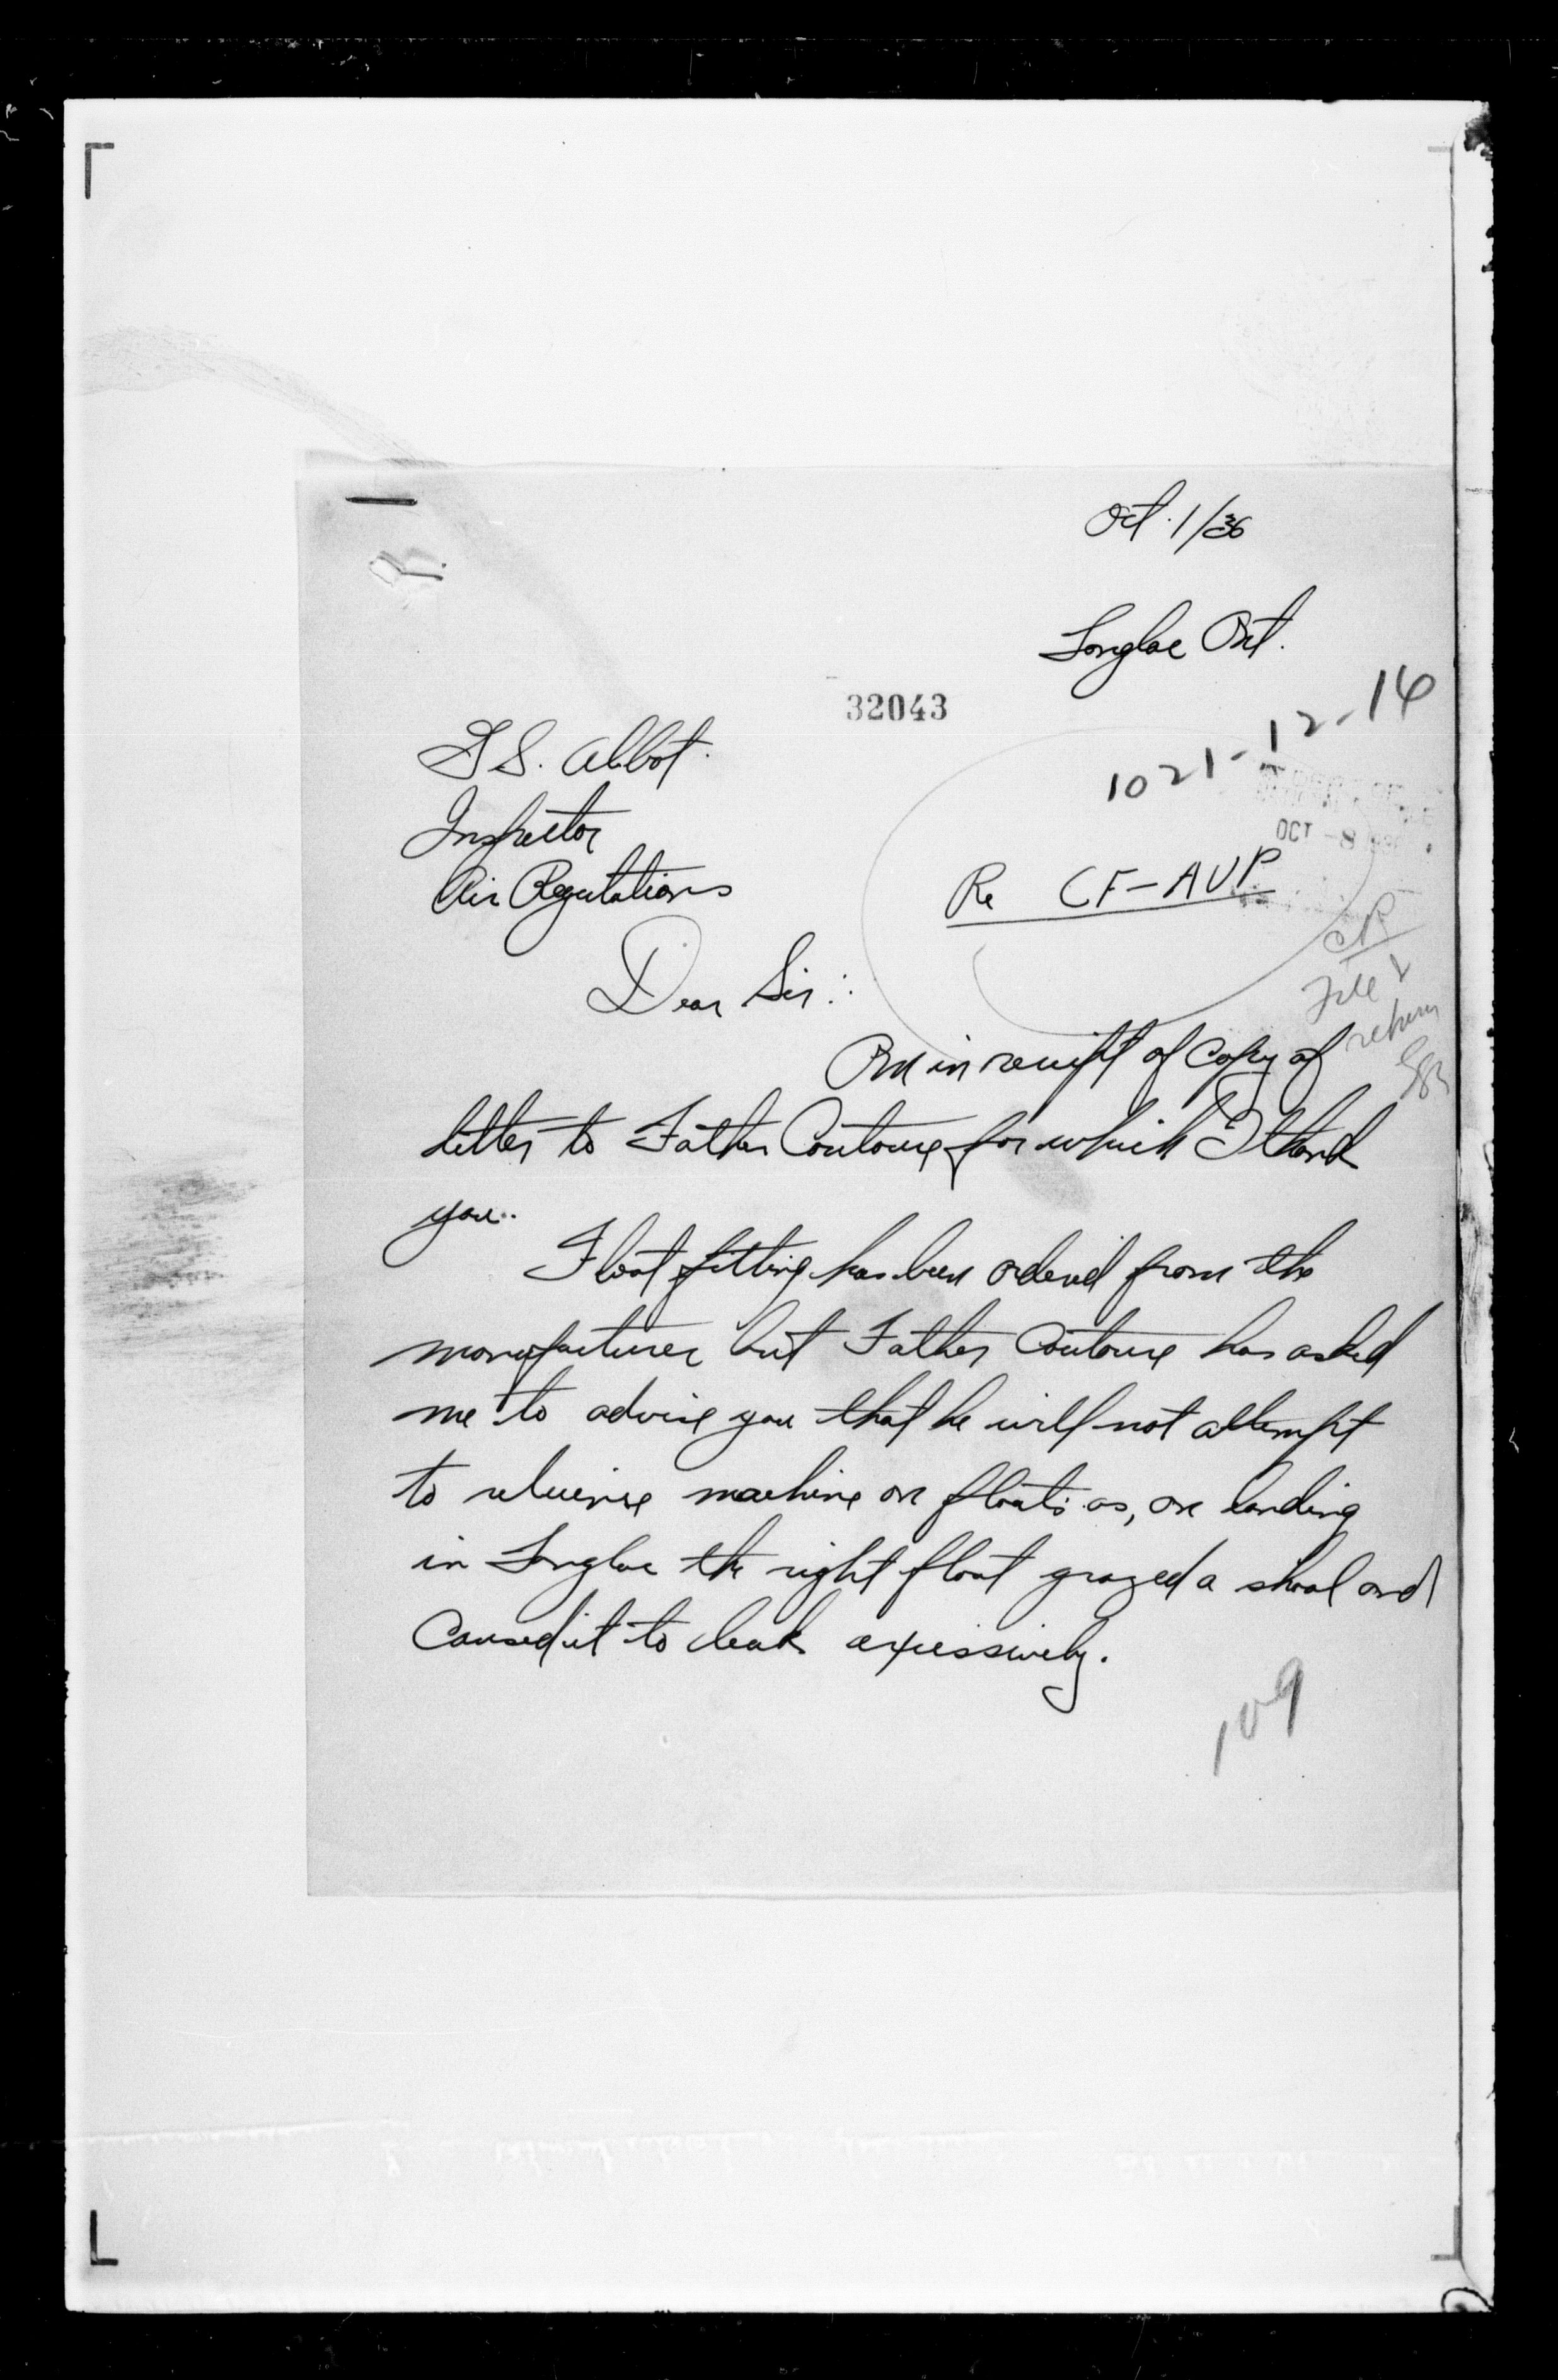 Oct. 1/36
Longlac Ont.
32043
1021-12-14
G S. Abbot.
Inspector
Air Regulations
OCT -8
Re CF-AUP
CR
File &
return
Dear Sir:
Am in receipt of copy of
letter to Father Couture for which I thank
you.
Float fitting has been ordered from the
manufacturer but Father Couture has asked
me to advise you that he will not attempt
to relicense machine on floats as, on landing
in Longlac the right float grazed a shoal and
caused it to leak excessively.
109